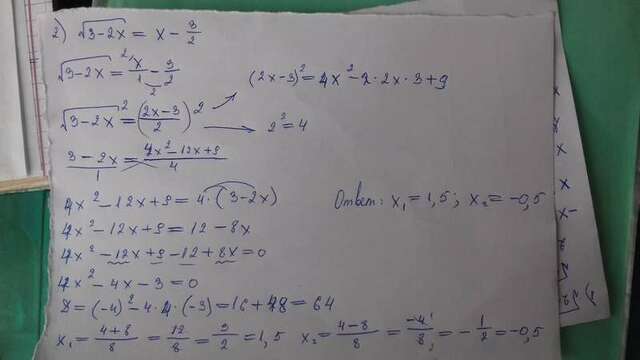 2) √3-2x = x - 3/2
√3-2x = ²⁄x/1 - 3/2
√3-2x ² = (2x-3/2)²
(2x-3)² = 4x² - 2·2x·3+9
2² = 4
3-2x/1 = 4x²-12x+9/4
4x²-12x+9 = 4·(3-2x)
Ответ: x₁ = 1,5; x₂ = -0,5
4x²-12x+9 = 12-8x
4x²-12x+9-12+8x=0
4x²-4x-3=0
D=(-4)²-4·4·(-3)=16+48=64
x₁ = 4+8/8 = 12/8 = 3/2 = 1,5 x₂ = 4-8/8 = -4/8 = -1/2 = -0,5